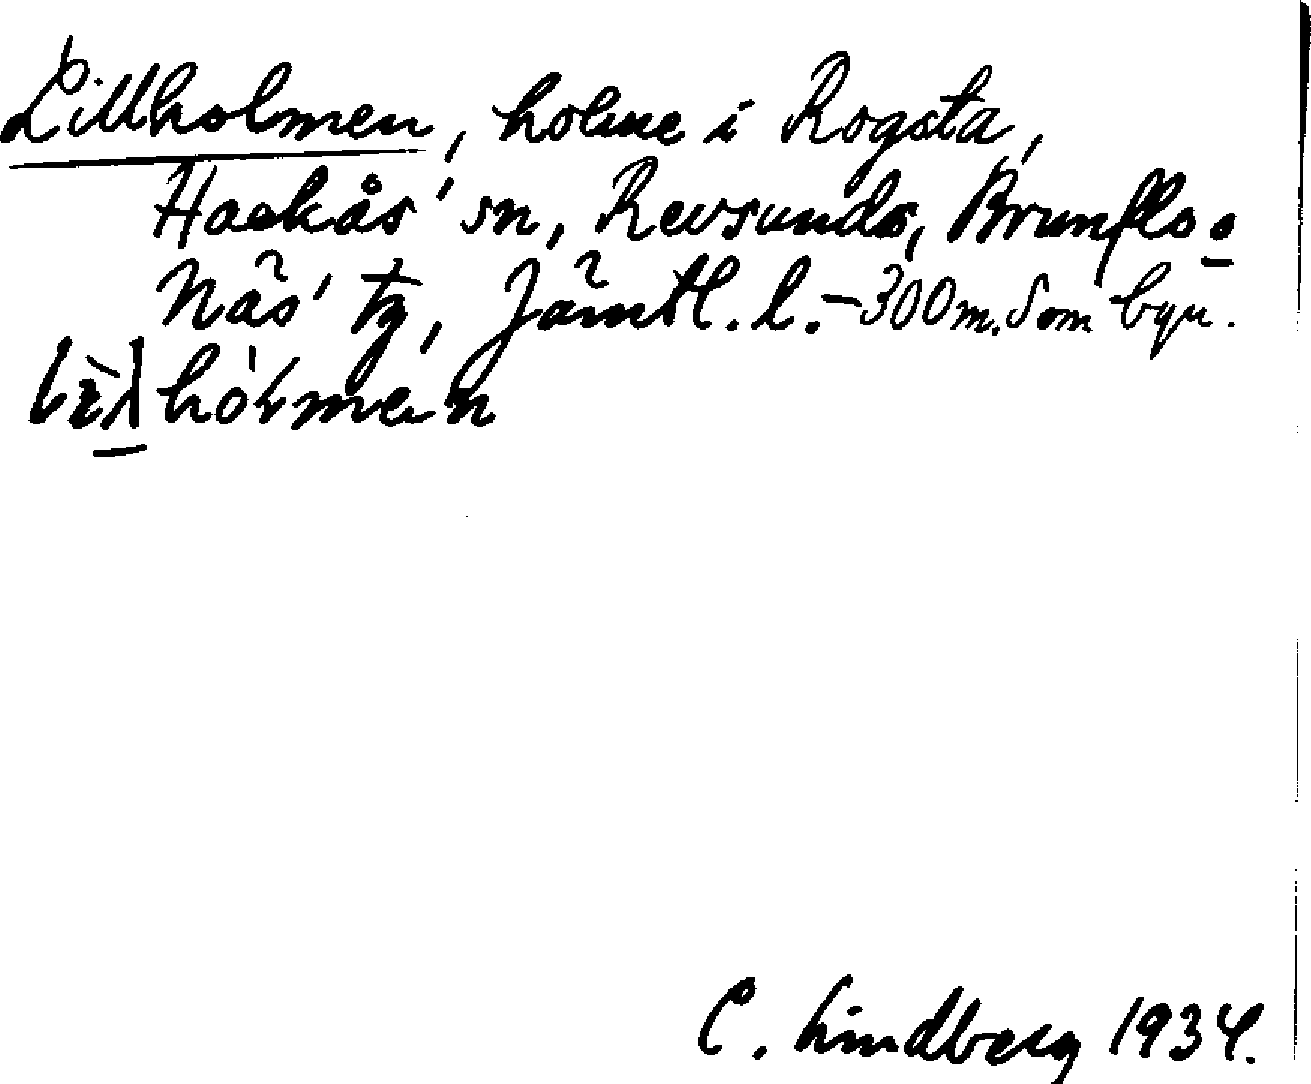 Lillholmen, holme i Rogsta,
Hackås' sn, Revsunds, Brunflo o
Näs' tg, Jämtl. l. – 300 m. S om byn.
C. Lindberg 1934.